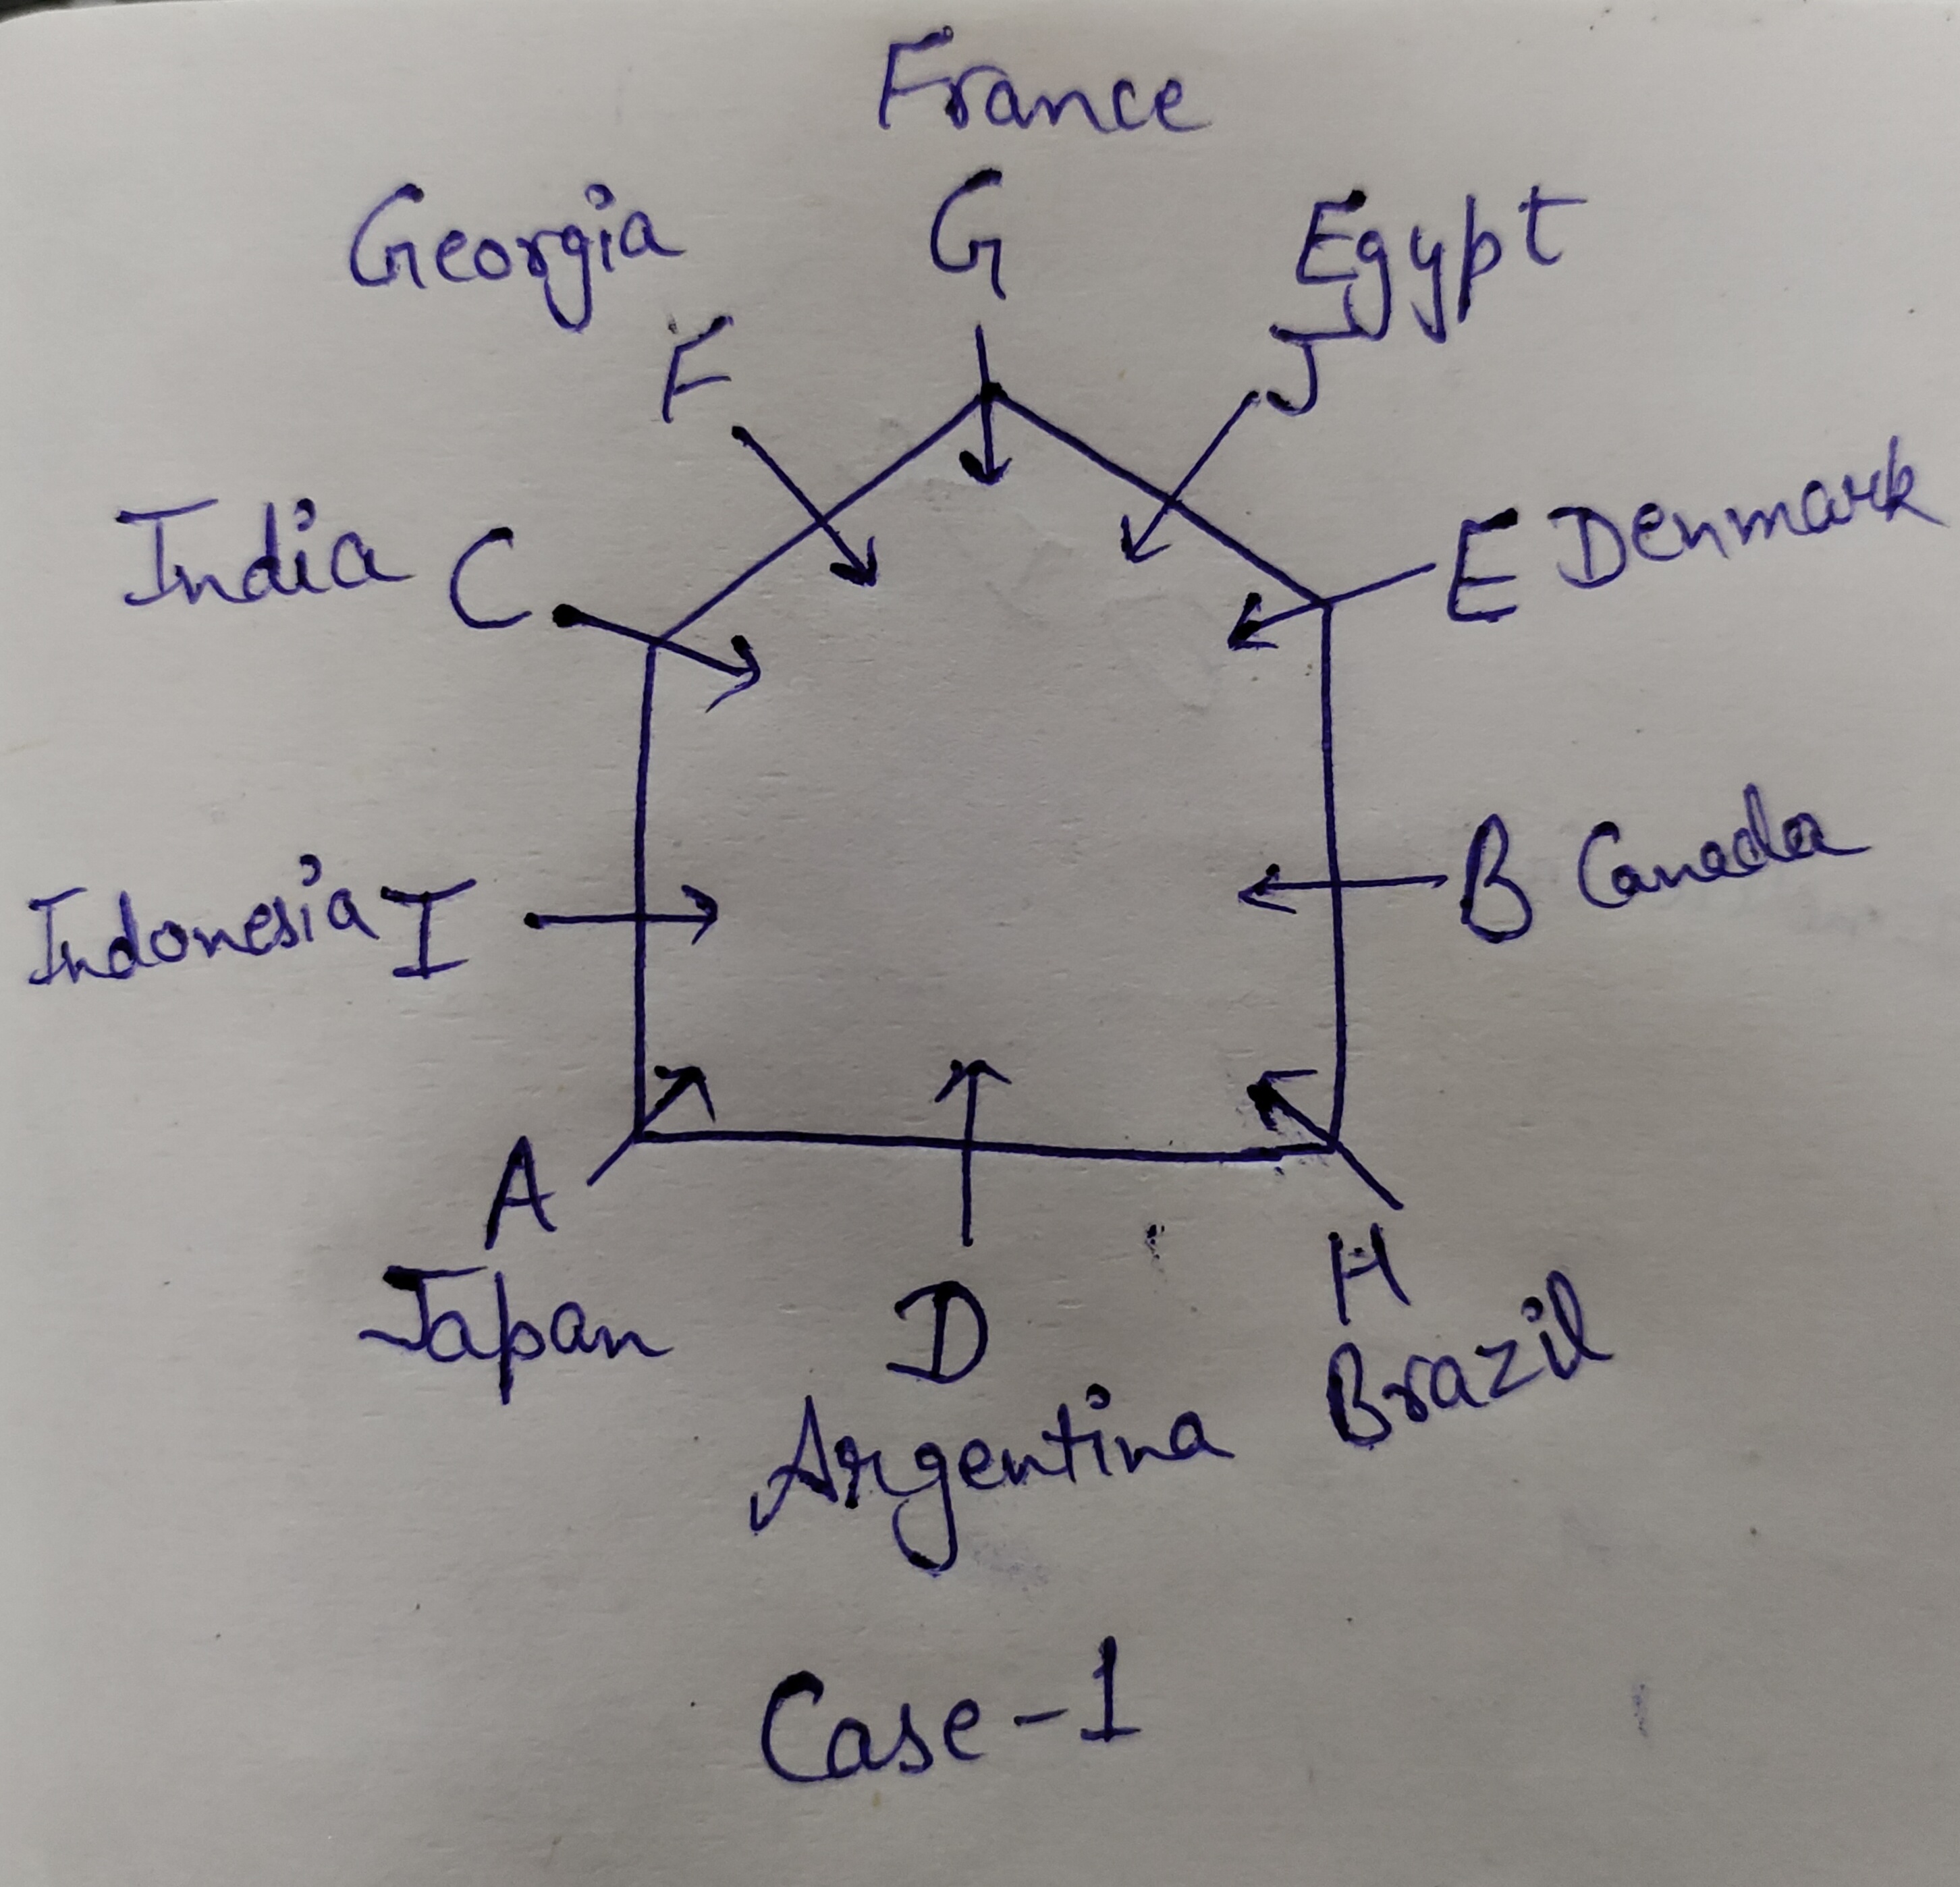 France
Georgia G Egypt
F J
India C E Denmark
Indonesia I B Canada
A D H
Japan Argentina Brazil
Case-1